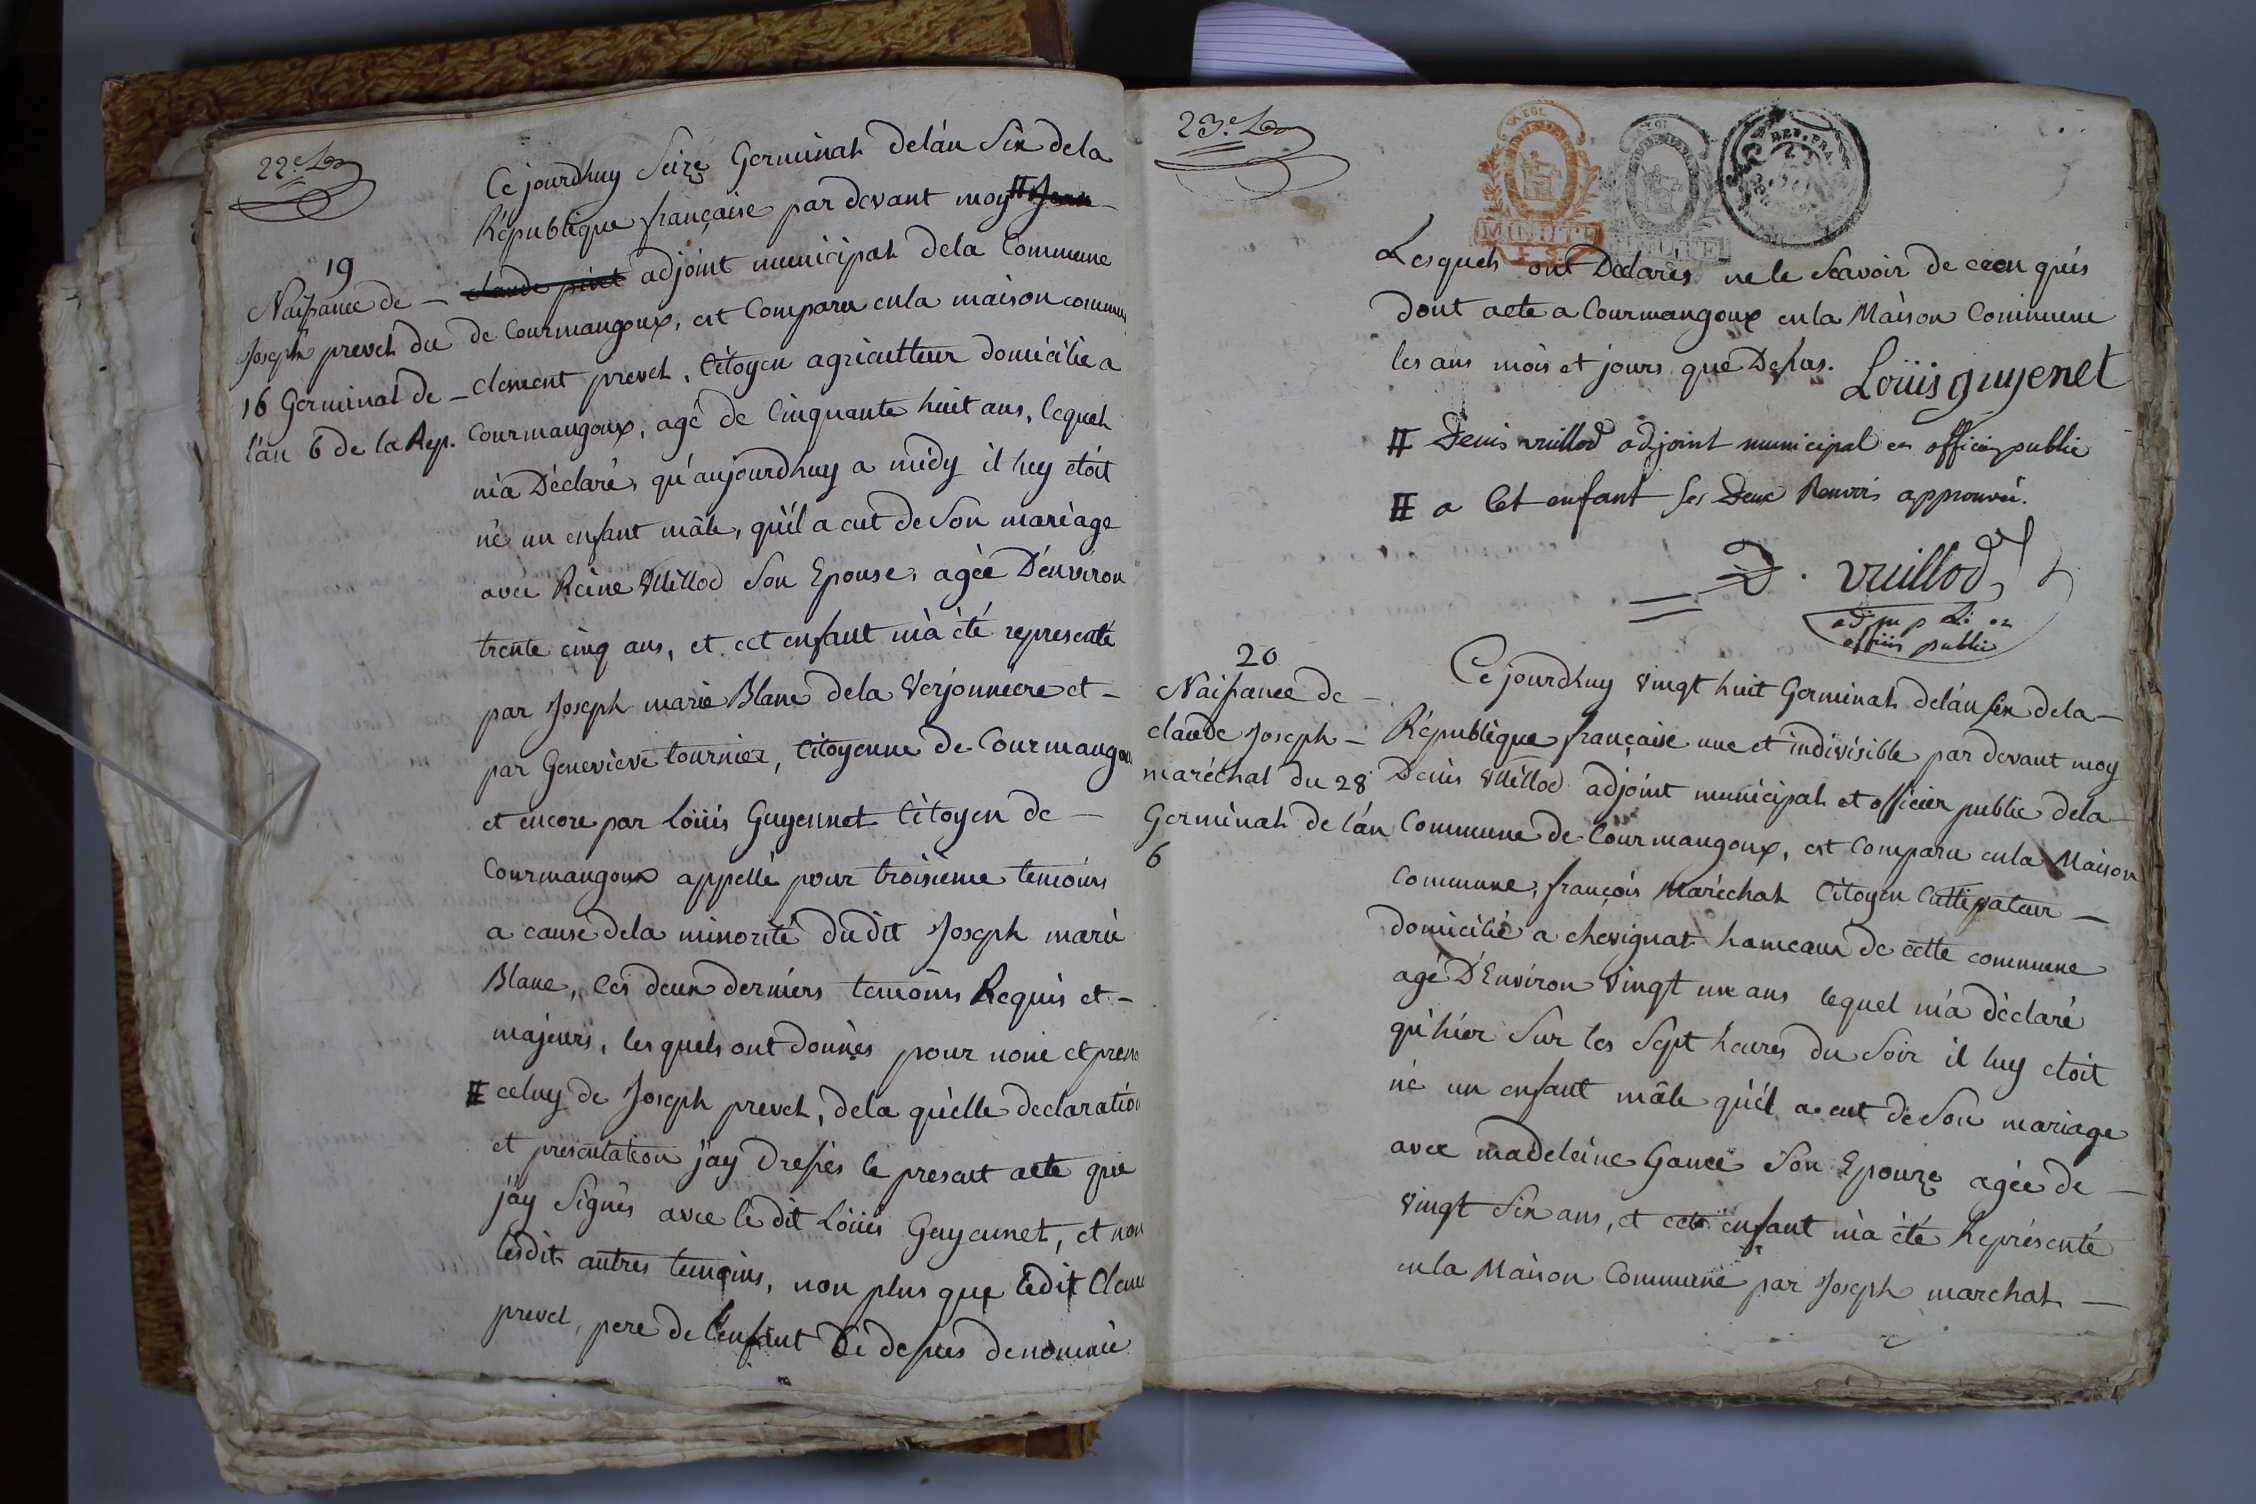 22.e
19
Naissance de
Joseph prevel du
16 Germinal de
l'an 6 de la Rep.
Ce jourdhuy Seize Germinal delán Six dela
République française par devant moy ⧺ Jean
claude adjoint municipal dela Commune
de Courmangoux, est Comparu enla maison commun
clement prevel, Citoyen agriculteur domicilié a
Courmangoux, agé de Cinquante huit ans, lequel
m'a Déclaré, qu'aujourdhuy a midy il luy etoit
né un enfant mâle, qu'il a eut de Son mariage
avec Reine Vuillod Son Epouse, agée D'environ
trente cinq ans, et cet enfant m'a été representé
par Joseph marie Blanc dela Verjonniere et
par Genevieve tournier, Citoyenne de Courmangou
et encore par Loüis Guyennet Citoyen de
Courmangoux appellé pour troisieme temoins
a cause dela minorité dudit Joseph marie
Blanc, les deux derniers temoins Requis et
majeurs, lesquels ont donnés pour nom et preno
⧺ celuy de Joseph prevel, dela quelle declaration
et presentation j'ay dressés le present acte que
j'ay Signés avec le dit Loüis Guyennet, et non
lesdits autres temoins, non plus que ledit Cleme
prevel, pere de l'enfant Ci dessus denommé
23.e
MINUTE
REP. FRA.
Lesquels ont Déclarés ne le Scavoir de ce enquis
dont acte a Courmangoux enla Maison Commune
les ans mois et jours que Dessus. Loüis guyenet
⧺ Denis vuillod adjoint municipal et officier public
⧺ a Cet enfant les Deux Renvois approuvé.
D. vuillod
officier public
20
Naissance de
claude Joseph
maréchal du 28
Germinal de l'án
6
Ce jourdhuy Vingt huit Germinal delán Six dela
République française une et indivisible par devant moy
Denis Vuillod adjoint municipal et officier public dela
Commune de Courmangoux, est Comparu enla Maison
Commune, françois Maréchal Citoyen Cultivateur
domicilié a chevignat hameaux de cette commune
agé D'Environ Vingt un ans lequel m'a déclaré
qu'hier Sur les Sept heures du Soir il luy etoit
né un enfant mâle qu'il a eut de Son mariage
avec madeleine Son Epouze agée de
Vingt Six ans, et cet enfant m'a été Représenté
enla Maison Commune par Joseph marchal